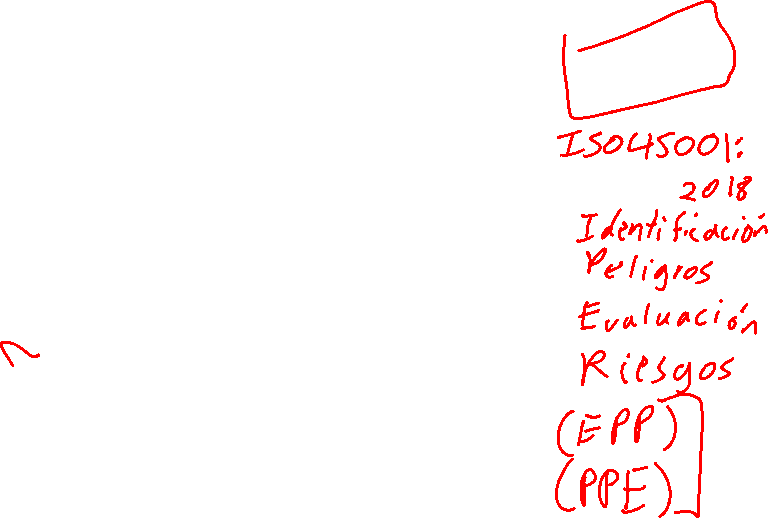 ISO45001:
2018
Identificación
Peligros
Evaluación
Riesgos
(EPP)
(PPE)